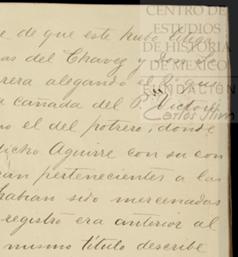 CENTRO DE
ESTUDIOS
DE HISTORIA
DE MÉXICO
FUNDACIÓN
Carlos Slim
e de que este hubo
as del Chavez y
rera alegando el 2º que
a cañada del P. Victor
no el del potrero, donde
dicho Aguirre con su con
can pertenecientes a las
habian sido mercenadas
registro era anterior al
mismo título describe